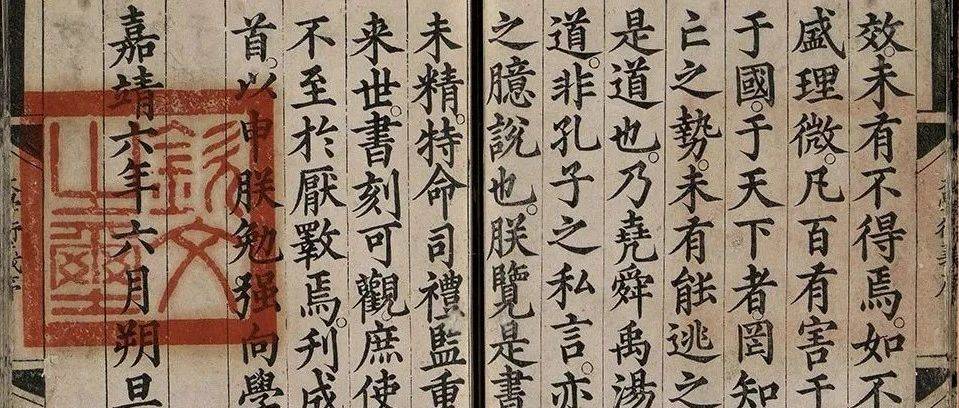 效。未有不得焉。如不
盛理微。凡百有害于
于國。于天下者。罔知
亡之勢。未有能逃之
是道也。乃堯舜禹湯
道。非孔子之私言。亦
之臆說也。朕覽是書
未精。特命司禮監重
来世。書刻可觀。庶使
不至於厭斁焉。刋成
首。以申朕勉强向學
嘉靖六年六月朔旦
欽文之璽